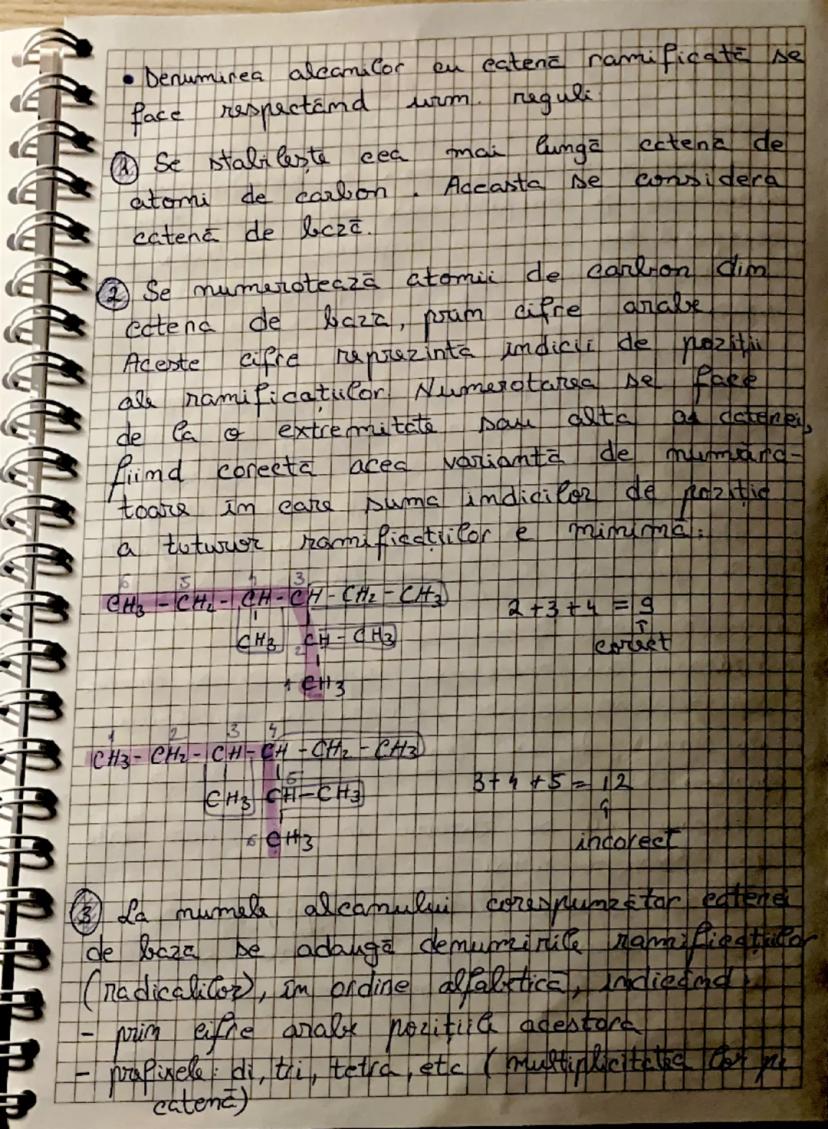 • Denumirea alcanilor cu catenă ramificată se
face respectând urm. reguli
① Se stabilește cea mai lungă catenă de
atomi de carbon. Aceasta se consideră
catenă de bază.
② Se numerotează atomii de carbon din
catena de bază, prin cifre arabe
Aceste cifre reprezintă indicii de poziții
ale ramificațiilor. Numerotarea se face
de la o extremitate sau alta a catenei,
fiind corectă acea variantă de numără-
toare în care suma indicilor de poziție
a tuturor ramificațiilor e minimă.
6 5 4 3
CH3 - CH2 - CH - CH - CH2 - CH3
2 + 3 + 4 = 9
CH3 2 CH - CH3
corect
1 CH3
1 2 3 4
CH3 - CH2 - CH - CH - CH2 - CH3
5
3 + 4 + 5 = 12
CH3 CH - CH3
6 CH3
incorect
③ La numele alcanului corespunzător catenei
de bază se adaugă denumirile ramificațiilor
(radicalilor), în ordine alfabetică, indicând
- prin cifre arabe pozițiile acestora
- prefixele: di, tri, tetra, etc (multiplicitatea lor pe
catenă)